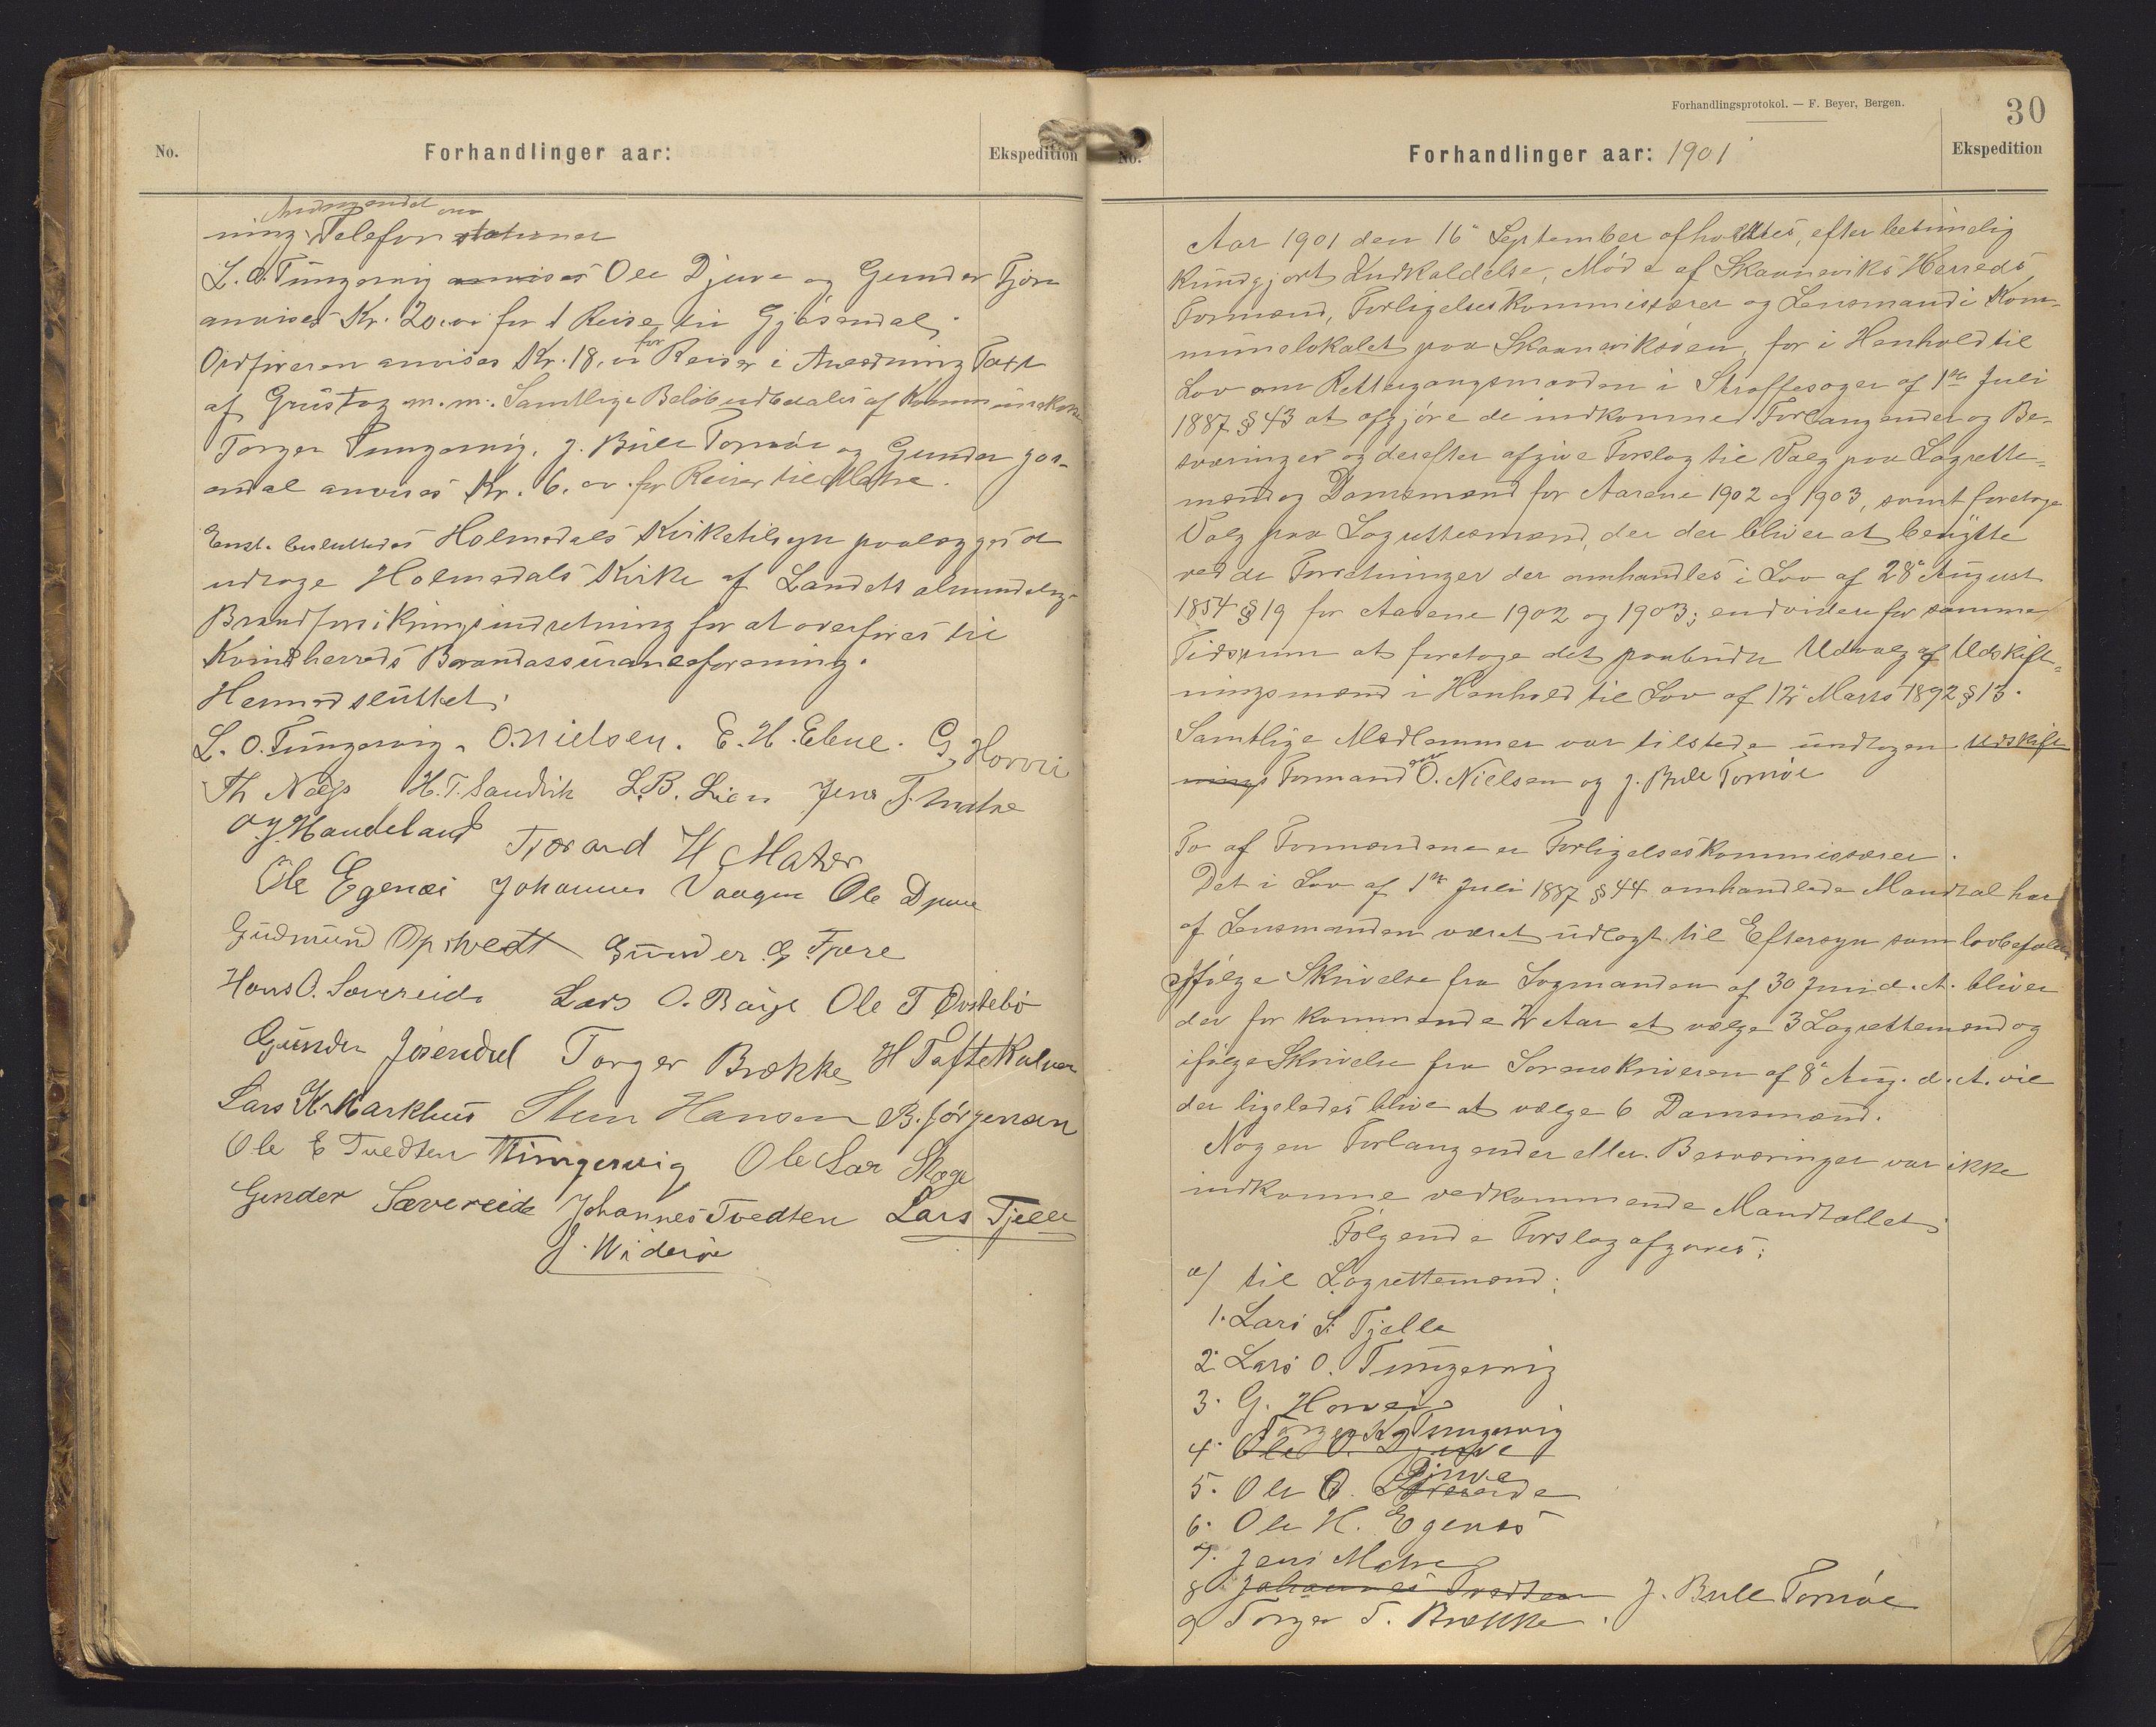 No.
Forhandlinger aar:
Ekspedition
ning Telefonstationer
L. O. Tungesvig anvises Ole Djuve og Gunder Fjære
anvises Kr. 20,00 for 1 Reise til Gjøsendal.
Ordføreren anvises Kr. 18,00 for Reiser i Anledning Taxt
af Grustag m. m. Samtlige Beløb udbetales af Kommunekassen
Torger Tungesvig, J. Bull Tornøe og Gunder Jøs-
endal anvises Kr. 6,00 for Reiser til Matre.
Enst. besluttedes Holmedals Kirketilsyn paalægges at
udtage Holmedals Kirke af Landets almindelige
Brandforsikringsindretning for at overføres til
Kvindherreds Brandassuranceforening.
Hermed sluttet.
L. O. Tungesvig. O. Nielsen. E. H. Ebne. G. Horvei
Th Næss H. T. Sandvik L. B. Lien Jens T. Matre
O J. Handeland Tjørand H Matre
Ole Egenæs Johannes Vaagen Ole Djuve
Gudmund Opstvedt Gunder G. Fjære
Hans O. Sævereide Lars O. Bauge Ole T Østebø
Gunder Jøsendal Torger Brekke H Toftekalven
Lars K. Markhus Sten Hansen B. Jørgensen
Ole E Tvedten TTungesvig Ole Lar Skage
Gunder Sævereide Johannes Tvedten Lars Tjelle
J. Widerøe
Forhandlingsprotokol. — F. Beyer, Bergen.
30
No.
Forhandlinger aar: 1901
Ekspedition
Aar 1901 den 16de September afholdtes, efter betimelig
kundgjort Indkaldelse, Møde af Skaaneviks Herreds
Formænd, Forligelseskommissærer og Lensmand i Kom-
munelokalet paa Skaaneviksøen, for i Henhold til
Lov om Rettergangsmaaden i Straffesager af 1ste Juli
1887 § 43 at afgjøre de indkomne Forlangender og Be-
sværinger og derefter afgive Forslag til Valg paa Lagrette-
mænd og Domsmænd for Aarene 1902 og 1903, samt foretage
Valg paa Lagrettesmænd, der der bliver at benytte
ved de Forretninger der omhandles i Lov af 28de August
1854 § 19 for Aarene 1902 og 1903; endvidere for samme
Tidsrum at foretage det paabudte Udvalg af Udskift-
ningsmænd i Henhold til Lov af 12te Marts 1892 § 13.
Samtlige Medlemmer var tilstede undtagen Udskift
nings Formand O. Nielsen og J. Bull Tornøe
To af Formændene er Forligelseskommissærer.
Det i Lov af 1ste Juli 1887 § 44 omhandlede Mandtal har
af Lensmanden været udlagt til Eftersyn som lovbefalet
Ifølge Skrivelse fra Lagmanden af 30 Juni d. A. bliver
der for kommende 2 Aar at vælge 3 Lagrettemænd og
ifølge Skrivelse fra Sorenskriveren af 8de Aug. d. A. vil
der ligeledes blive at vælge 6 Domsmænd.
Nogen Forlangender eller Besværinger var ikke
indkomne vedkommende Mandtallet.
Følgende Forslag afgaves:
a) til Lagrettemænd:
1. Lars S. Tjelle
2. Lars O. Tungesvig
3. G. Horvei
Torger K Tungesvig
4. Ole O. Djuve
Djuve
5. Ole O.
6. Ole H. Egenæs
7. Jens Matre
8 Johannes Tvedten J. Bull Tornøe
9 Torger T. Brekke.